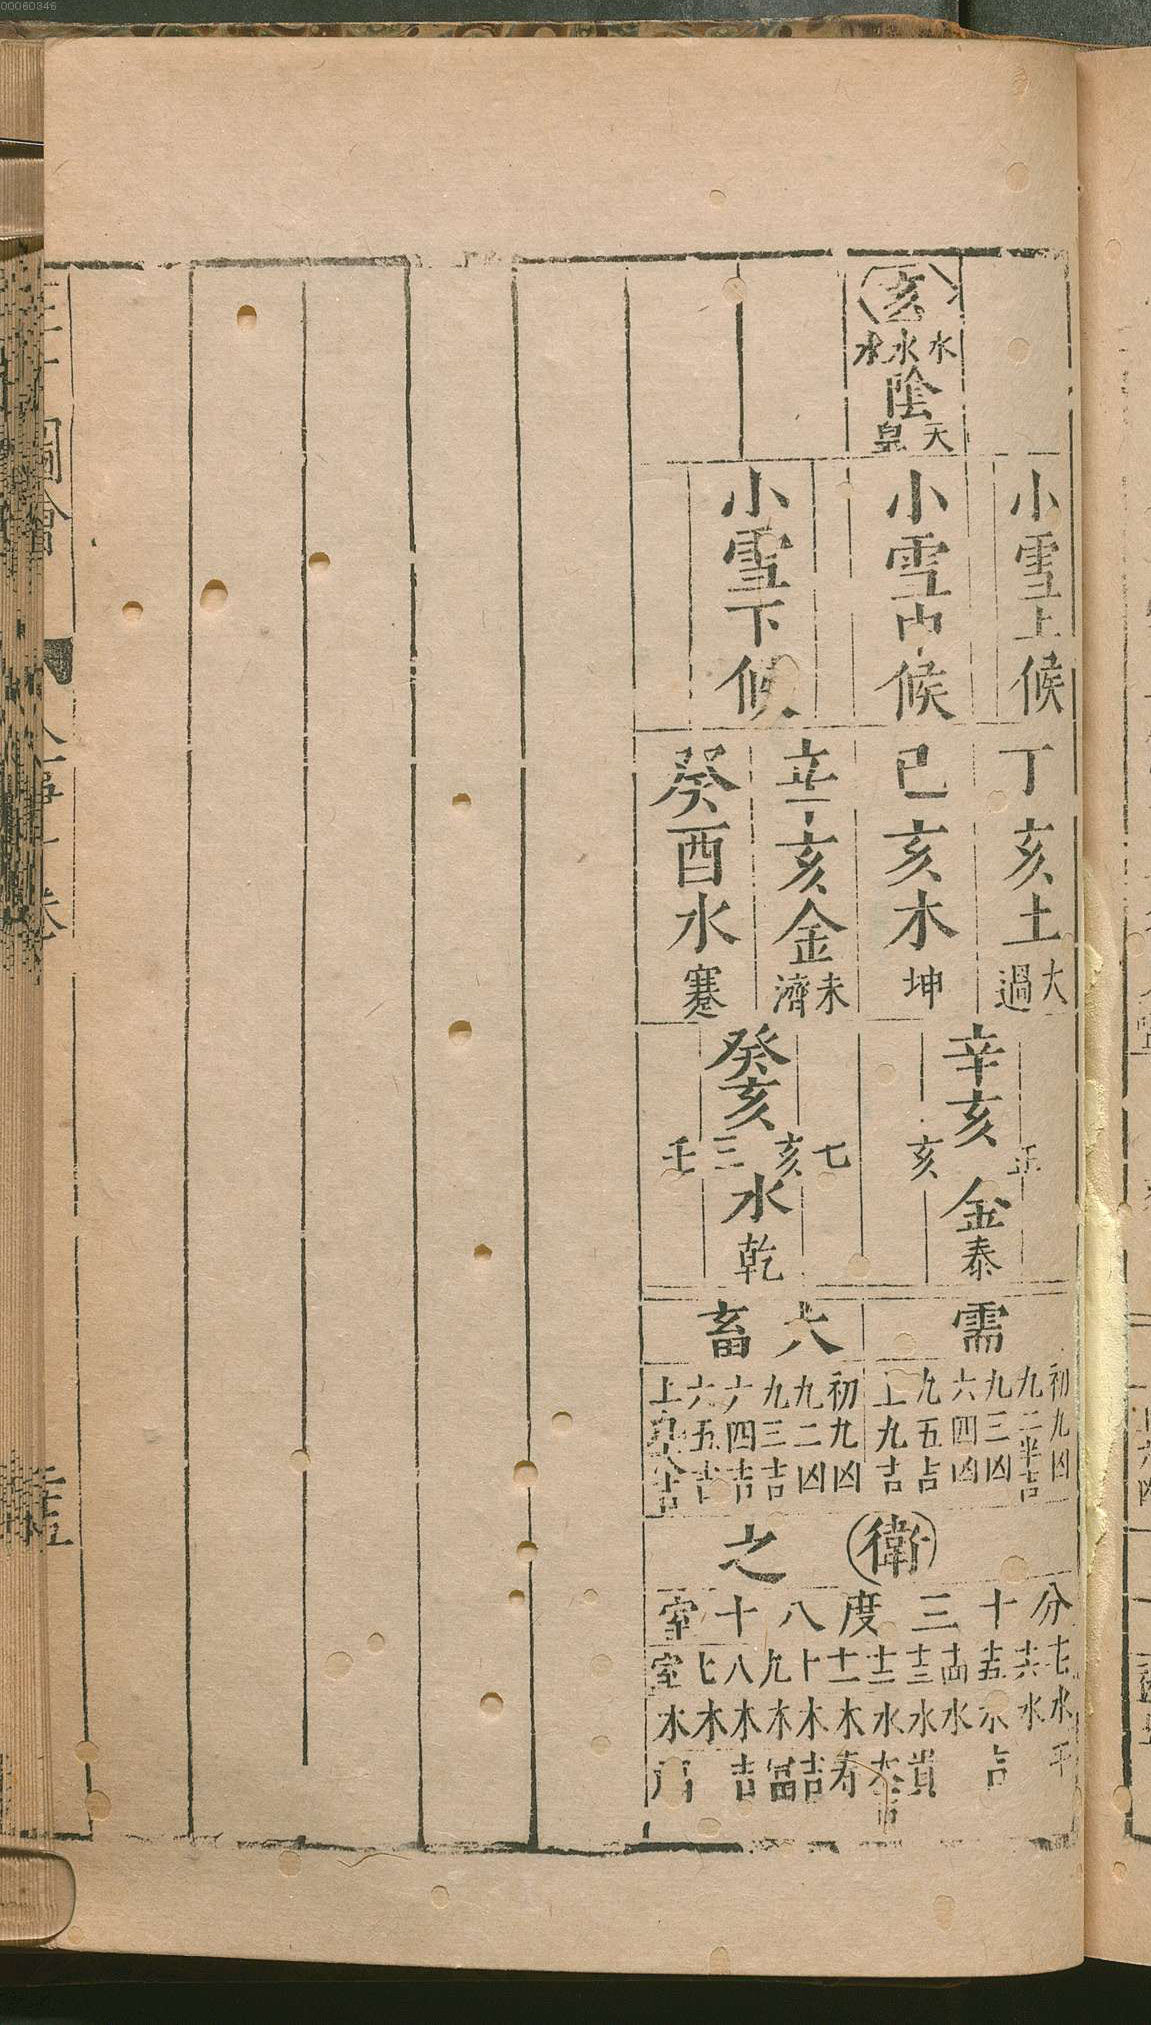 00060346
亥
水水水
陰
天皇
小雪上候
小雪中候
小雪下候
丁亥土
大過
己亥木坤
辛亥金
未濟
癸酉水蹇
辛亥
亥
金泰
癸亥
七亥三壬
水乾
需
大畜
初九凶
九二半吉
九三凶
六四凶
九五吉
上九吉
初九凶
九二凶
九三吉
六四吉
六五吉
衛之
分十三度八十室
水平
十六水
十五水吉
十四水
十三水貴
十二水大吉
十一木寿
十木吉
九木富
八木吉
七木
室水
圖會